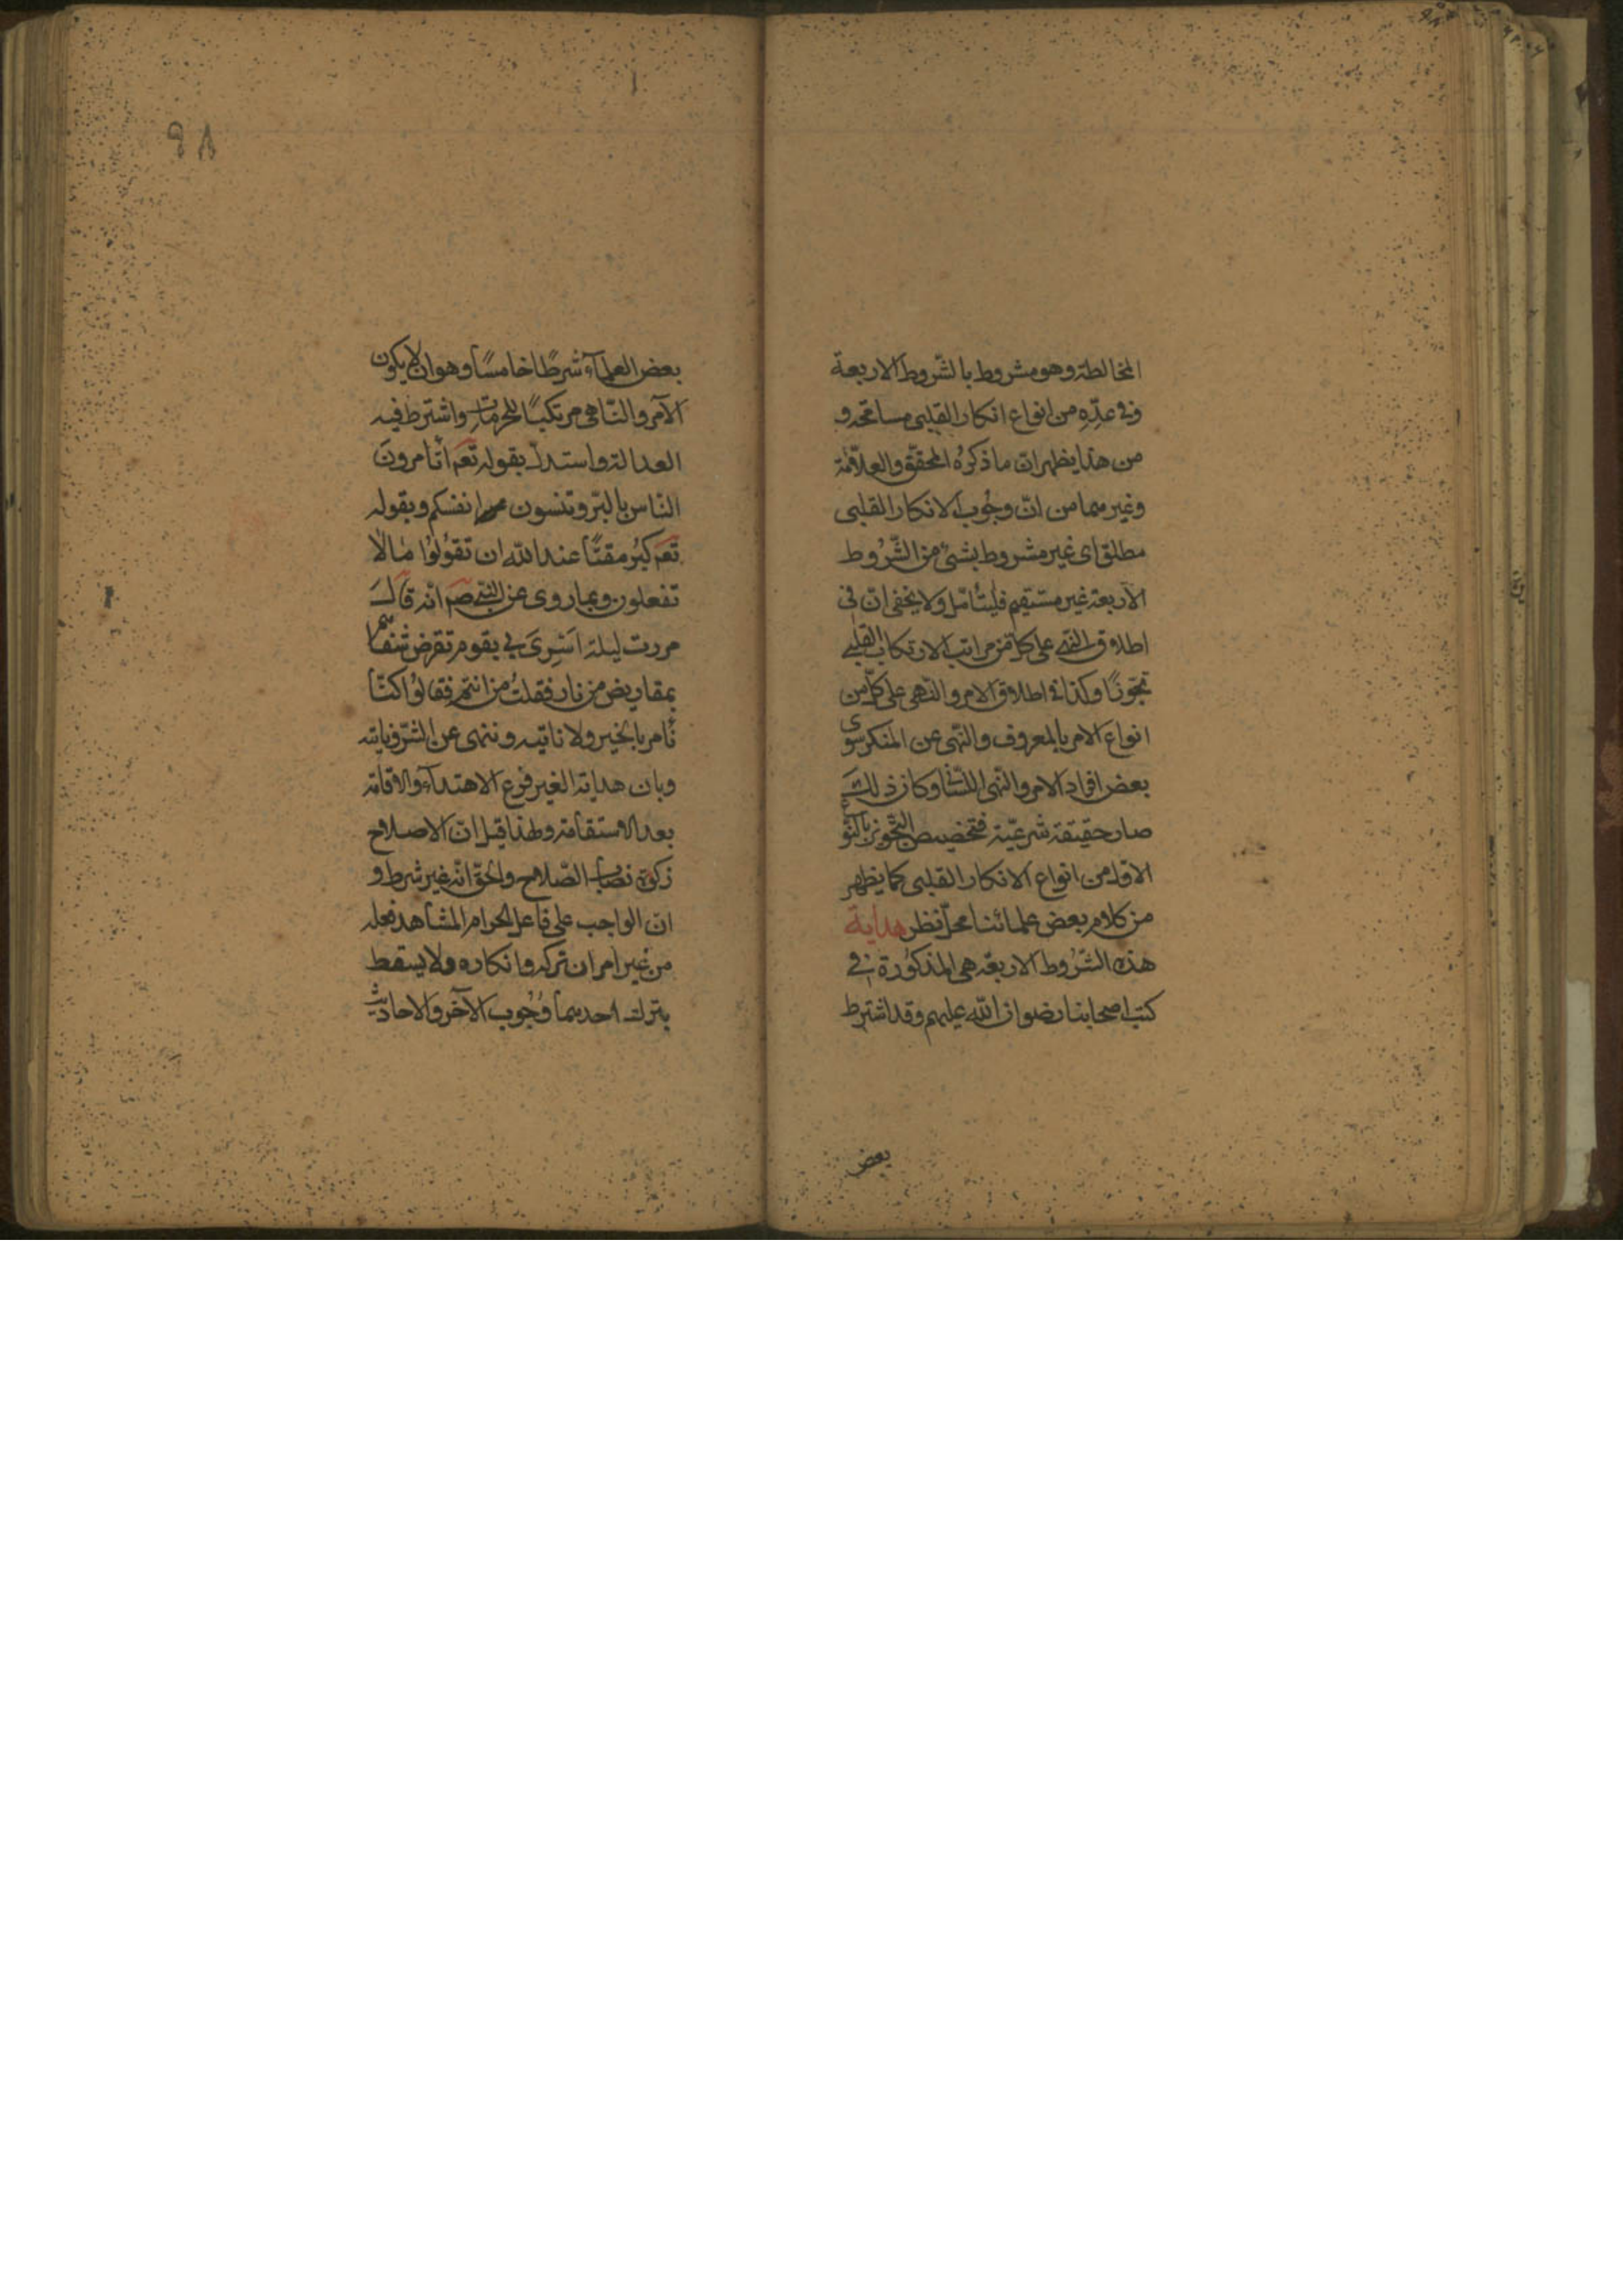 المخالطة وهو مشروط بالشّروط الاربعة
وفی عدّه من انواع انكار القلبی مسامحة و
من هذا يظهر انّ ما ذكرهُ المحقق والعلّامة
وغيرهما من انّ وجُوب الانكار القلبی
مطلق ای غير مشروط بشیء من الشّرُوط
الاربعة غير مستقيم فليتأمّل ولا يخفی انّ فی
اطلاق النّهی علی كل من مراتب الارتكاب القلبی
تجوّزًا وكذا فی اطلاق الامر والنهی علی كلّ من
انواع الامر بالمعروف والنّهی عن المنكر سوی
بعض افراد الامر والنّهی اللسانی وكان ذلك
صار حقيقة شرعيّة فتخصيص التّجوز بالنّوع
الاوّل من انواع الانكار القلبی كما يظهر
من كلام بعض علمائنا محلّ نظر هداية
هذه الشّرُوط الاربعة هی المذكُورة فی
كتب اصحابنا رضوان اللّه عليهم وقد اشترط
بعض
٩٨
بعض العلمآء شرطًا خامسًا وهو ان لا يكون
الآمر والنّاهی مرتكبًا للمحرّمات واشترط فيه
العدالة واستدلّ بقوله تعم أتامرونَ
النّاس بالبرّ وتنسون انفسكم وبقوله
تعم كبُر مقتًا عند اللّه ان تقُولُوا مالا
تفعلون وبما روی عن النّبی صم انّه قال
مررت ليلة اسْرِیَ بی بقوم تقرض شفاههم
بمقاريض من نار فقلتُ من انتم فقالوُا كنّا
نأمر بالخير ولا ناتيه وننهی عن الشّرّ وناتيه
وبان هداية الغير فرع الاهتدآء والاقامة
بعد الاستقامة ولهذا قيل انّ الاصلاح
زكوة نصاب الصّلاح والحقّ انّه غير شرط و
انّ الواجب علی فاعل الحرام المشاهد فعله
من غير امران تركه وانكاره ولا يسقط
بترك احديهما وُجُوب الآخر والاحاديث